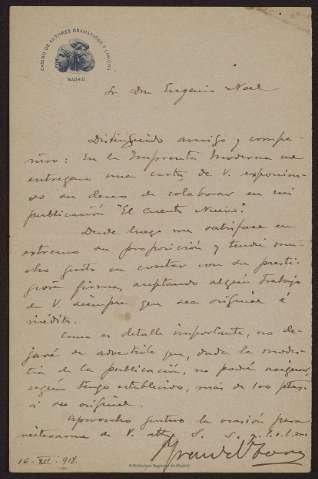 CENTRO DE AUTORES DRAMATICOS Y LIRICOS
MADRID
Sr Don Eugenio Noel
Distinguido amigo y compa-
ñero: En la Imprenta Moderna me
entregan una carta de V. exponien-
do su deseo de colaborar en mi
publicación "El Cuento Nuevo".
Desde luego me satisface en
extremo su proposición y tendré mu-
cho gusto en contar con su presti-
giosa firma, aceptando algún trabajo
de V. siempre que sea original é
inédito.
Como es detalle importante, no
dejaré de advertirle que, dada la modes-
tia de la publicación, no podré asegurar
según tengo establecido, más de 100 ptas
si es original.
Aprovecho gustoso la ocasión para
reiterarme de V. att. S. S. q. e. s. m.
16 - XII - 918.